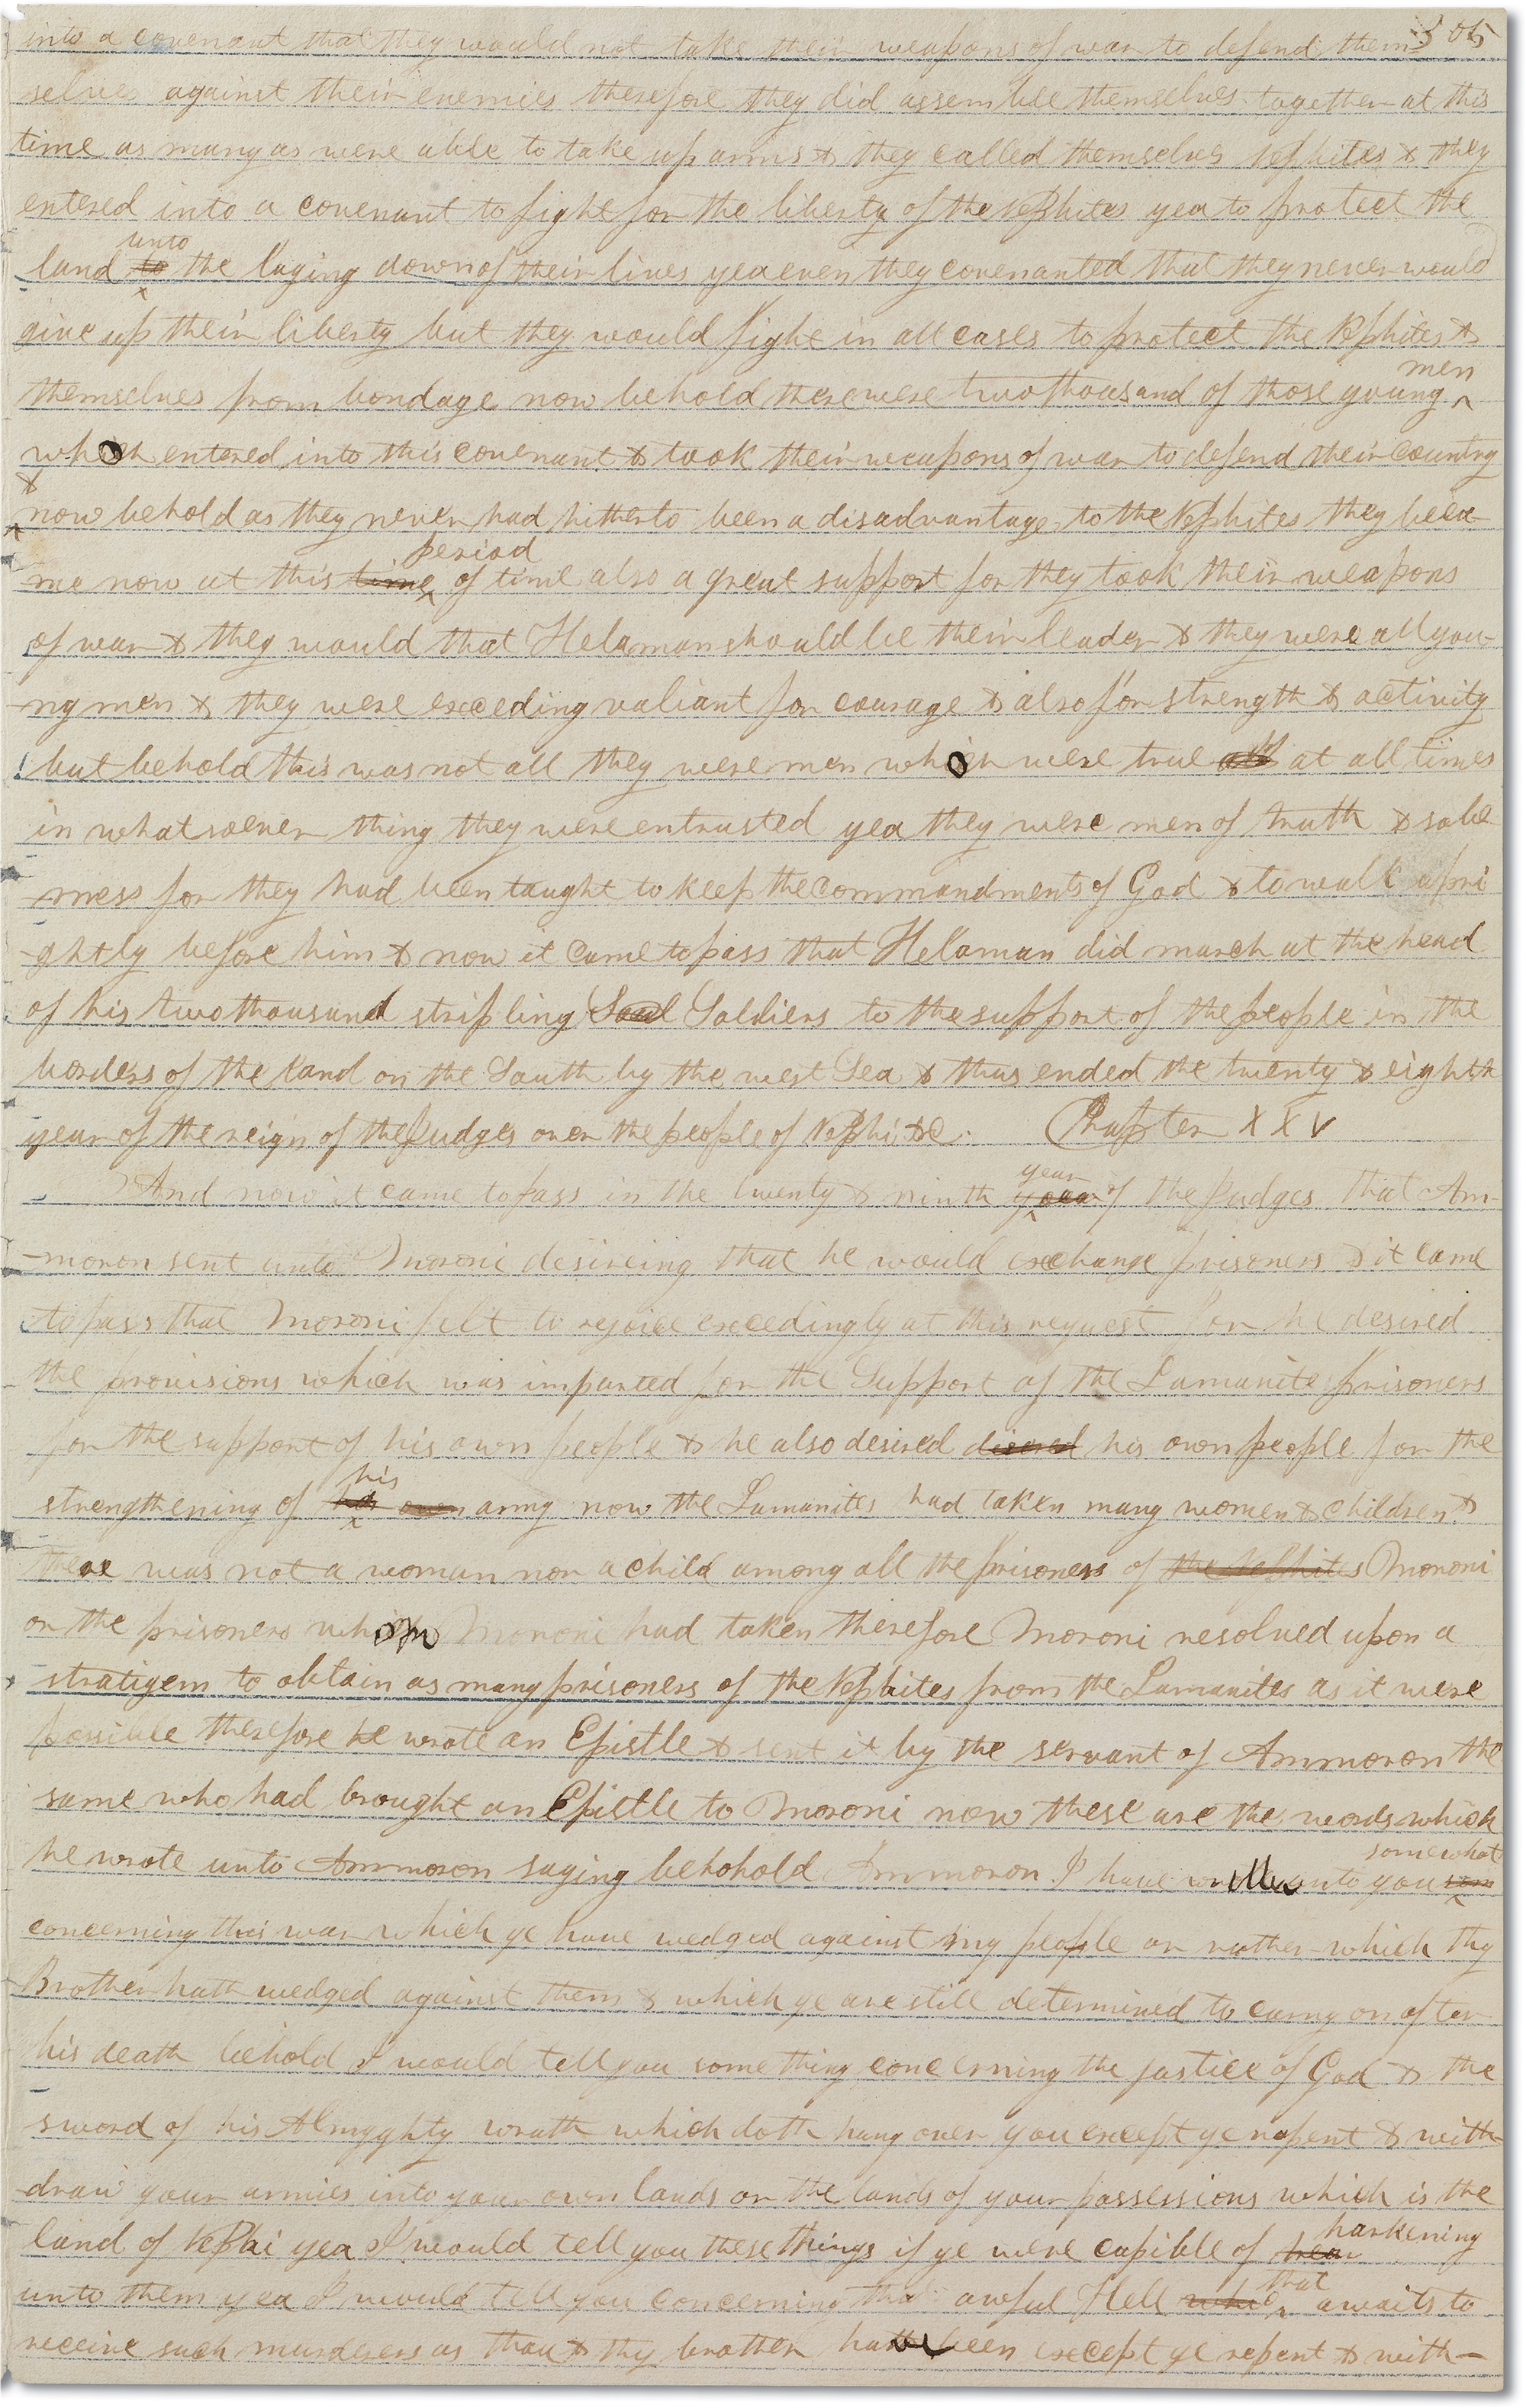 305
into a covenant that they would not take their weapons of war to defend them-
selves against their enemies therefore they did assemble themselves together at this
time as many as were able to take up arms & they called themselves Nephites & they
entered into a covenant to fight for the liberty of the Nephites yea to protect the
unto
land to the laying down of their lives yea even they covenanted that they never would
give up their liberty but they would fight in all cases to protect the Nephites &
men
themselves from bondage now behold there were two thousand of those young ^
who entered into this covenant & took their weapons of war to defend their country
&
now behold as they never had hitherto been a disadvantage to the Nephites they beca-
period
me now at this time of time also a great support for they took their weapons
of war & they would that Helaman should be their leader & they were all you-
ng men & they were exceding valiant for courage & also for strength & activity
but behold this was not all they were men who were true at all times
in whatsoever thing they were entrusted yea they were men of truth & sobe
-rness for they had been taught to keep the commandments of God & to walk upri
-ghtly before him & now it came to pass that Helaman did march at the head
of his two thousand stripling Soldiers to the support of the people in the
borders of the land on the South by the west Sea & thus ended the twenty & eighth
year of the reign of the Judges over the people of Nephi &c. Chapter XXV
year
And now it came to pass in the twenty & ninth year of the Judges that Am-
-moron sent unto Moroni desireing that he would exchange prisoners & it came
to pass that Moroni felt to rejoice excedingly at this request for he desired
the provisions which was imparted for the Support of the Lamanite prisoners
for the support of his own people & he also desired disered his own people for the
his
strengthening of his own army now the Lamanites had taken many women & children &
there was not a woman nor a child among all the prisoners of the Nephites Moroni
or the prisoners whom Moroni had taken therefore Moroni resolved upon a
stratigem to obtain as many prisoners of the Nephites from the Lamanites as it were
possible therefore he wrote an Epistle & sent it by the servant of Ammoron the
same who had brought an Epistle to Moroni now these are the words which
somewhat
he wrote unto Ammoron saying behohold Ammoron I have written unto you som
concerning this war which ye have wedged against my people or rather which thy
Brother hath wedged against them & which ye are still determined to carry on after
his death behold I would tell you some thing concerning the justice of God & the
sword of his Almyghty wrath which doth hang over you except ye repent & with-
draw your armies into your own lands or the lands of your possessions which is the
harkening
land of Nephi yea I would tell you these things if ye were capible of hear
that
unto them yea I would tell you concerning that awful Hell whi awaits to
receive such murderers as thou & thy brother hath been except ye repent & with-